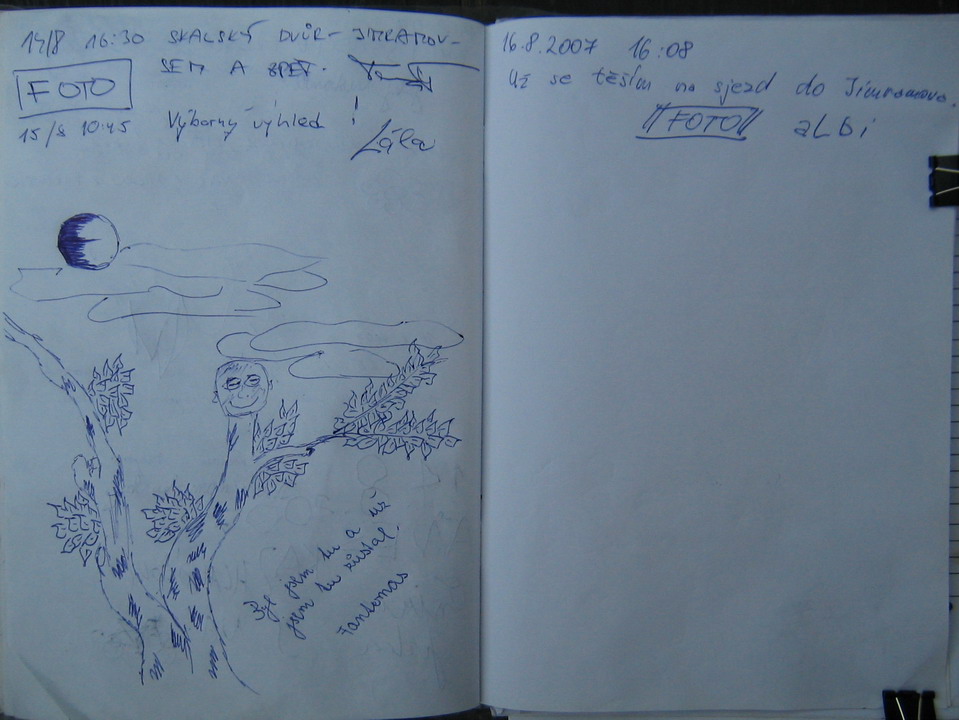 14/8 16:30 SKALSKÝ DVŮR - JIMRAMOV -
SEM A ZPĚT.
FOTO
15/8 10:45 Výborný výhled !
Lála
Byl jsem tu a už
jsem tu zůstal.
Fantomas
16.8.2007 16:08
Už se těším na sjezd do Jimramova.
FOTO aLbi